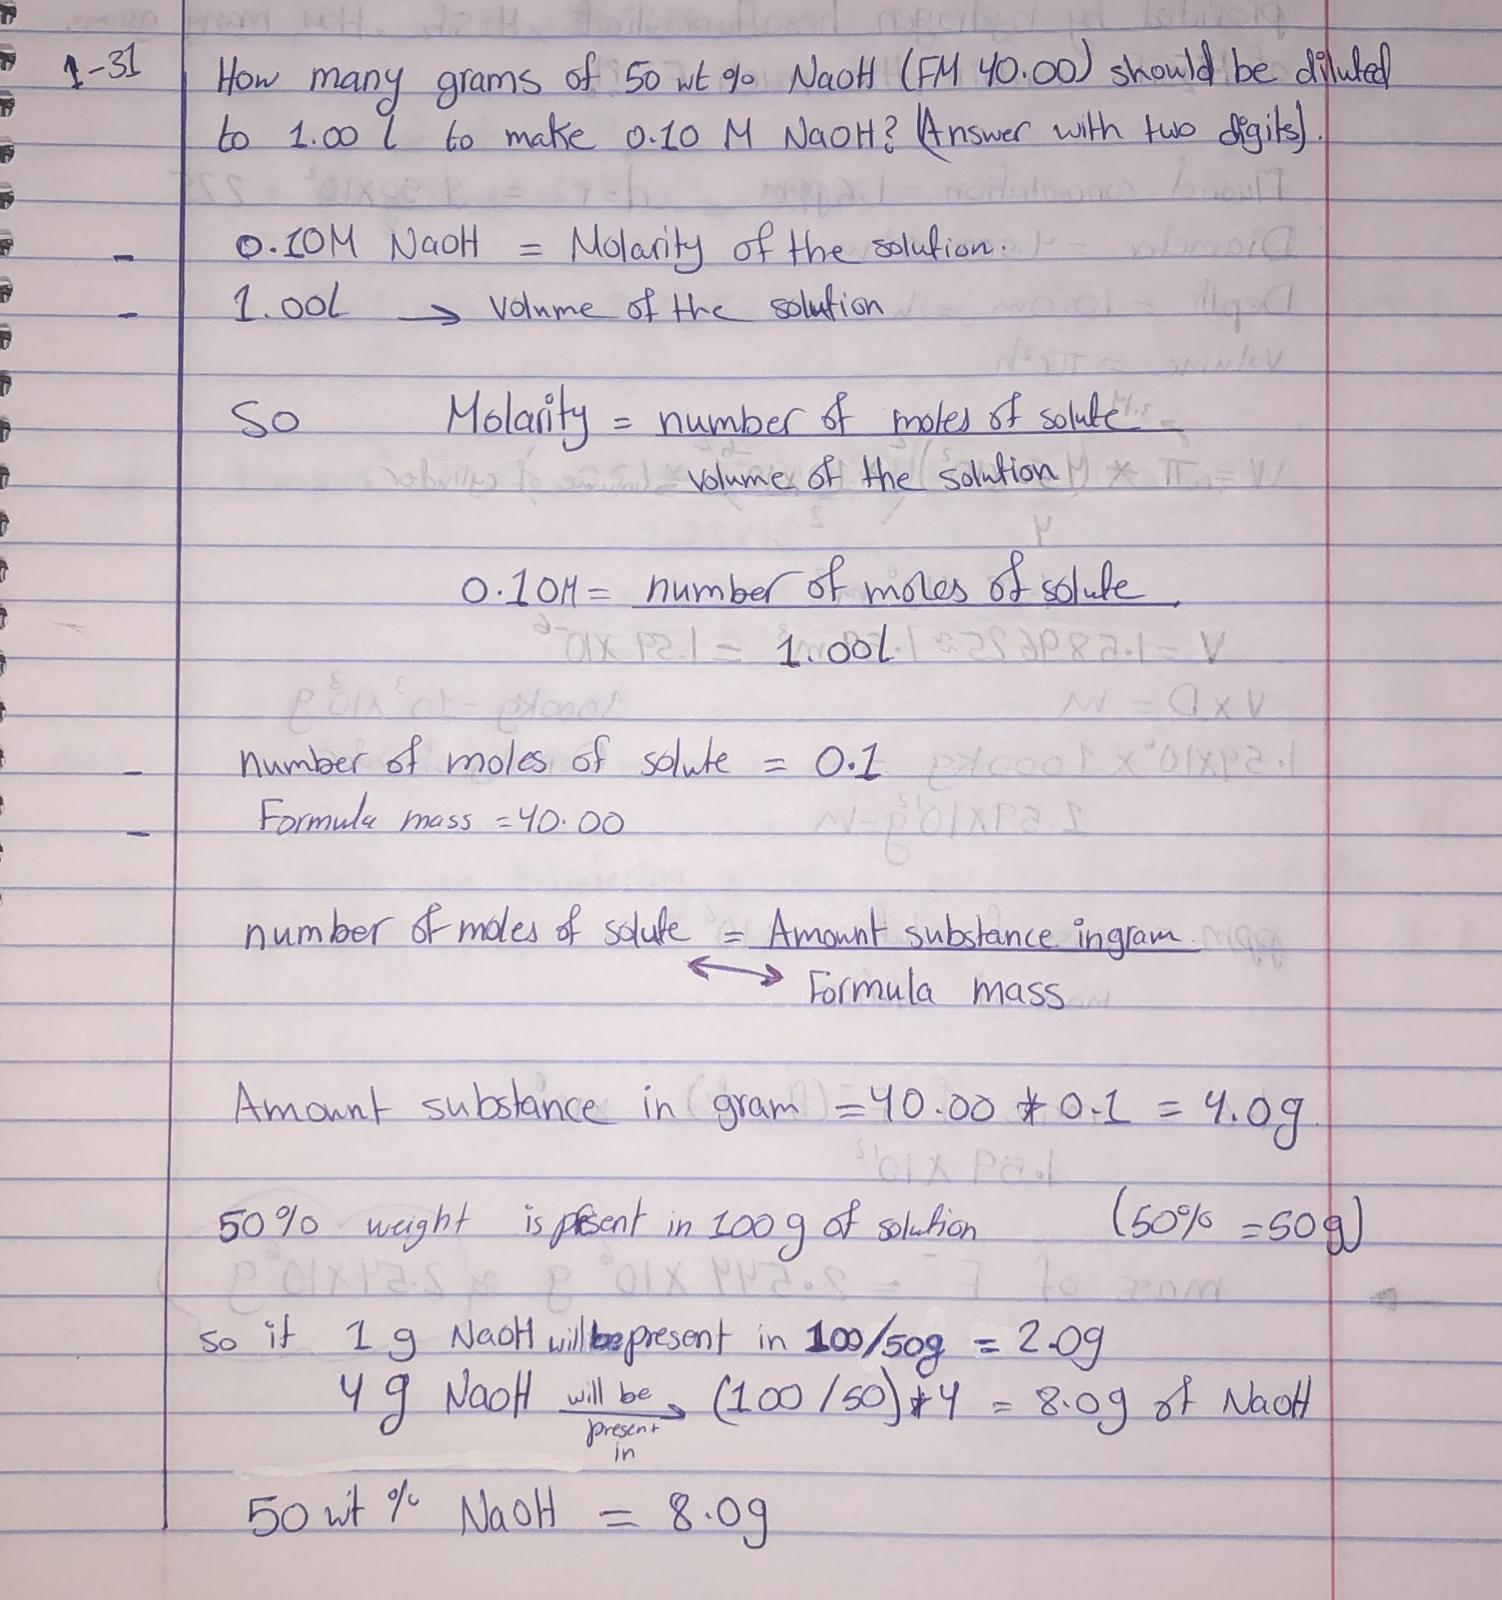 1-31 How many grams of 50 wt % NaOH (FM 40.00) should be diluted
to 1.00 l to make 0.10 M NaOH? (Answer with two digits).
- 0.10M NaOH = Molarity of the solution.
- 1.00L → volume of the solution
So Molarity = number of moles of solute
volume of the solution
0.10M = number of moles of solute
1.00L
- number of moles of solute = 0.1
- Formula mass = 40.00
number of moles of solute = Amount substance in gram
↔ Formula mass
Amount substance in gram = 40.00 * 0.1 = 4.0g
50% weight is present in 100g of solution (50% = 50g)
so if 1 g NaOH will be present in 100/50g = 2.0g
4 g NaOH will be present in → (100/50)*4 = 8.0g of NaOH
50 wt % NaOH = 8.0g